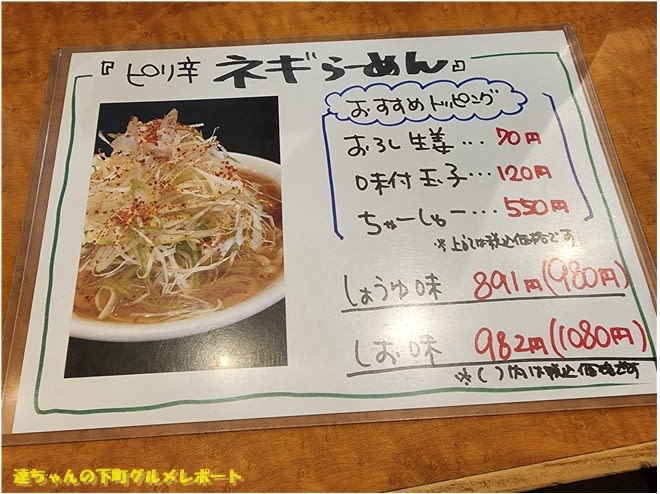 『ピリ辛 ネギらーめん』
おすすめトッピング
おろし生姜・・・70円
味付玉子・・・120円
ちゃーしゅー・・・550円
※上記は税込価格です
しょうゆ味 891円(980円)
しお味 982円(1080円)
※( )内は税込価格です
達ちゃんの下町グルメレポート